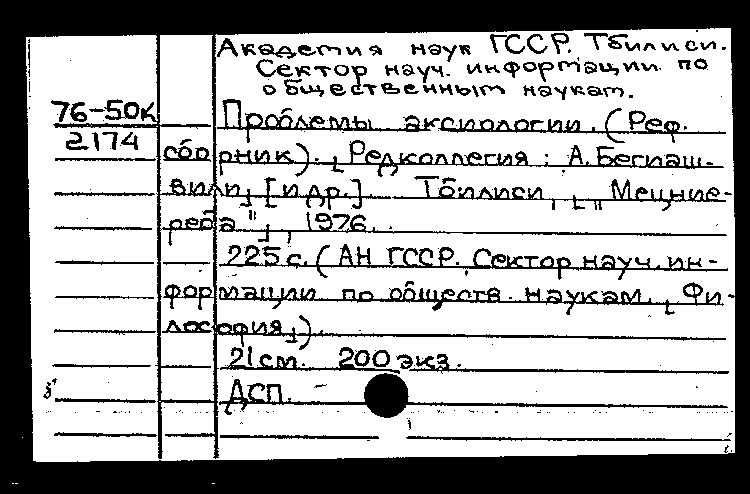 Академия наук ГССР. Тбилиси.
Сектор науч. информации по
общественным наукам.
76-50К
2174
Проблемы аксиологии. (Реф.
сборник). Редколлегия: А. Бегиаш-
вили, [и др.] Тбилиси, „Мецние-
реба", 1976.
225 с. (АН ГССР. Сектор науч. ин-
формации по обществ. наукам. Фи-
лософия).
21 см. 200 экз.
ДСП.